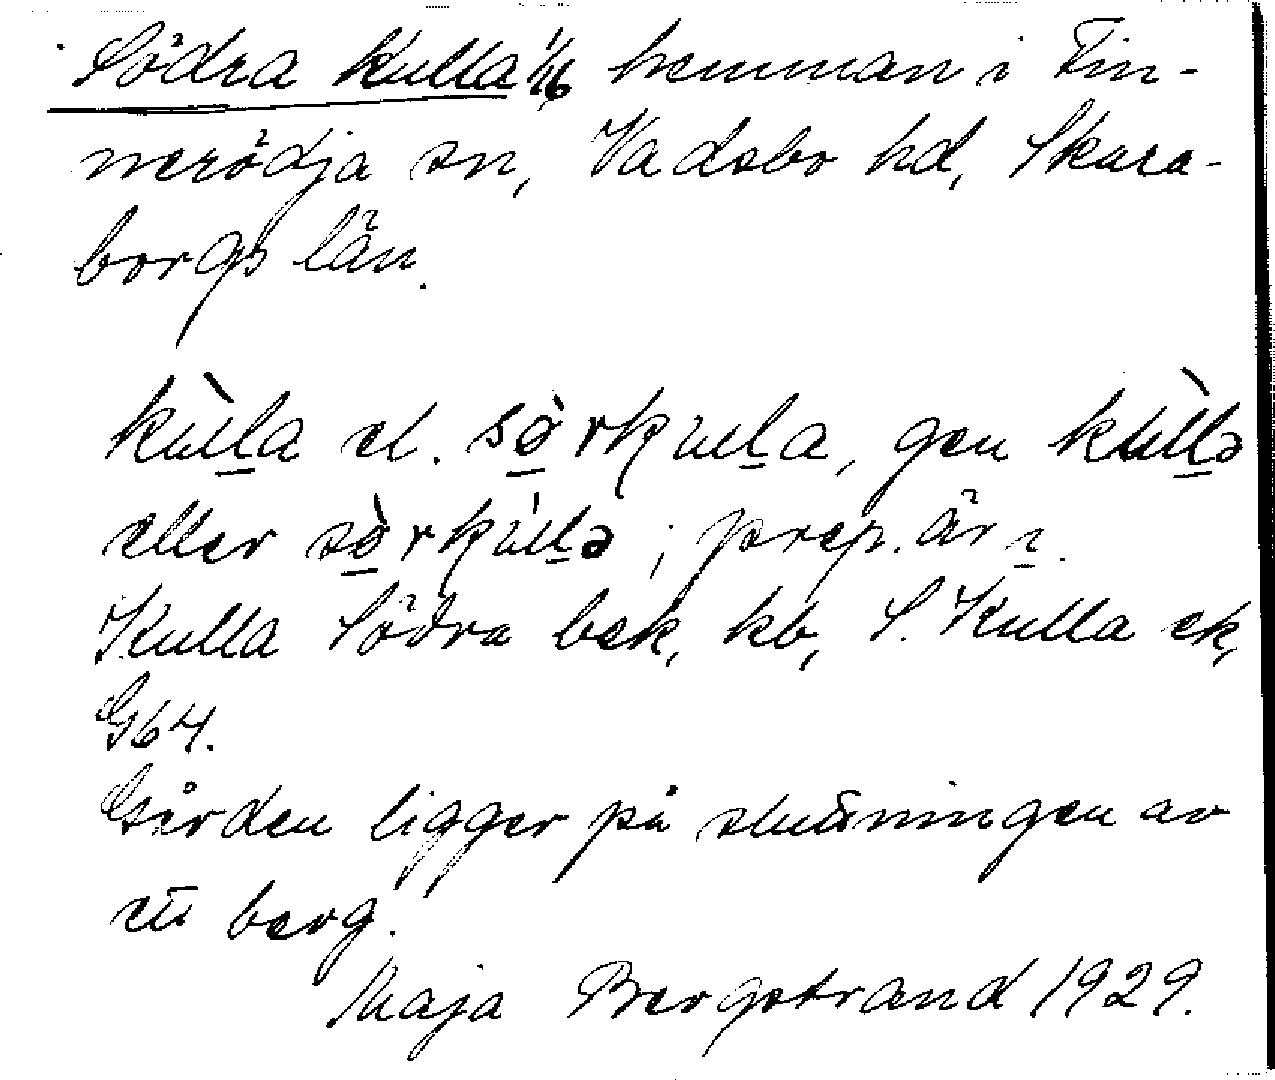 Södra Kulla 1/16 hemman i Tin-
nerödja sn, Vadsbo hd, Skara-
borgs län.
kùl̲a el. sö̲̀rkul̲a, gen kùll̲ə
eller sö̲̀rkùll̲ə; prep. är i̲.
Kulla Södra bek, kb, S. Kulla ek,
G64.
Gården ligger på sluttningen av
ett berg.
Maja Bergstrand 1929.